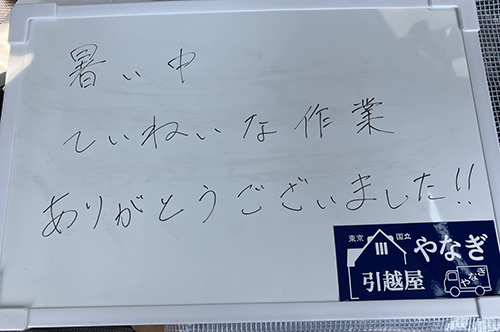 暑い中
ていねいな作業
ありがとうございました!!
東京 国立
やなぎ
引越屋
やなぎ